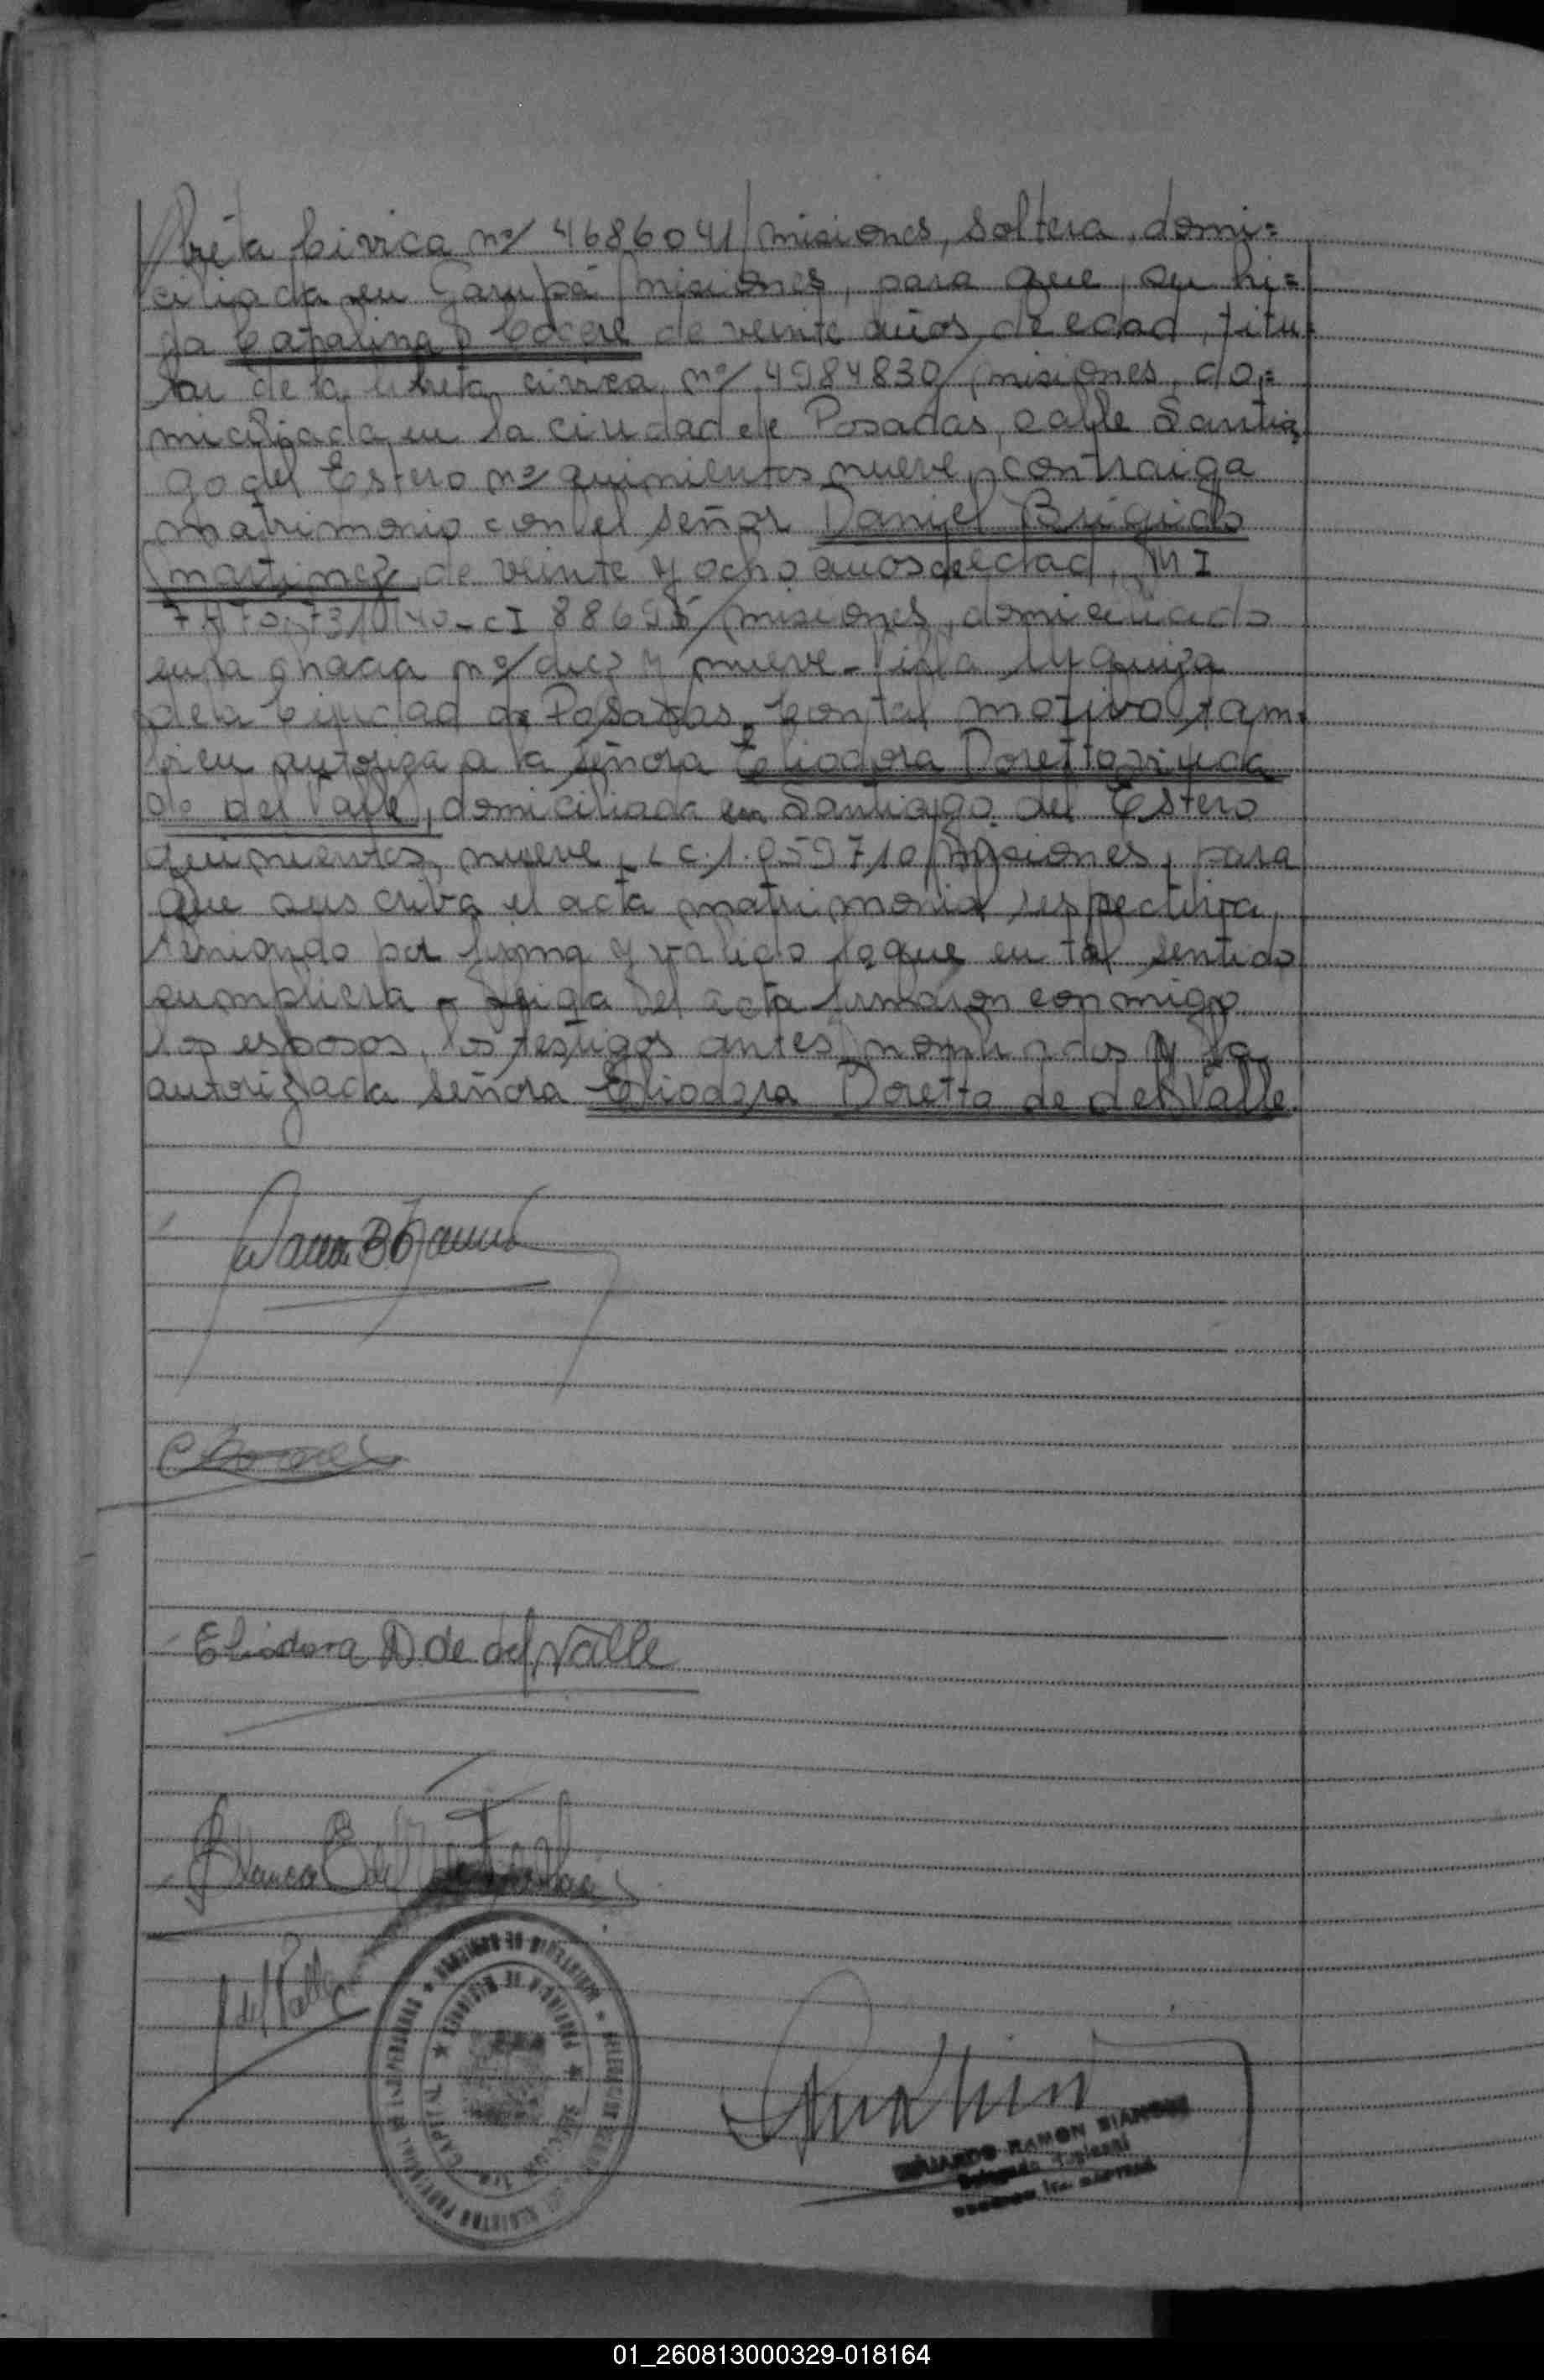 breta Civica nº/ 4686041/misiones, soltera, domi=
ciliada en Garupá/misiones, para que, su hi=
ja Catalina Cocere de veinte años de edad, titu=
lar de la libreta civica nº/ 4984830/misiones, do,=
miciliada en la ciudad de Posadas, calle Santia
go del Estero nº quinientos nueve, contraiga
matrimonio con el señor Daniel Brigido
martinez, de veinte y ocho años de edad, MI
CI misiones, domiciliado
en la chacra nº/ diez y nueve - Villa Urquiza
de la Ciudad de Posadas. Con tal motivo tam=
bien autoriza a la señora Eliodora Doretto viuda
de del Valle, domiciliada en Santiago del Estero
quinientos nueve, L C. 1.059710/misiones, para
que suscriba el acta matrimonial respectiva,
teniendo por firme y valido lo que en tal sentido
cumpliera - del acta firmaron conmigo
los esposos, los testigos antes nombrados y la
autorizada señora Eliodora Doretto de del Valle.
Eliodora D de del Valle
Blanca B del
J del Valle
EDUARDO RAMON